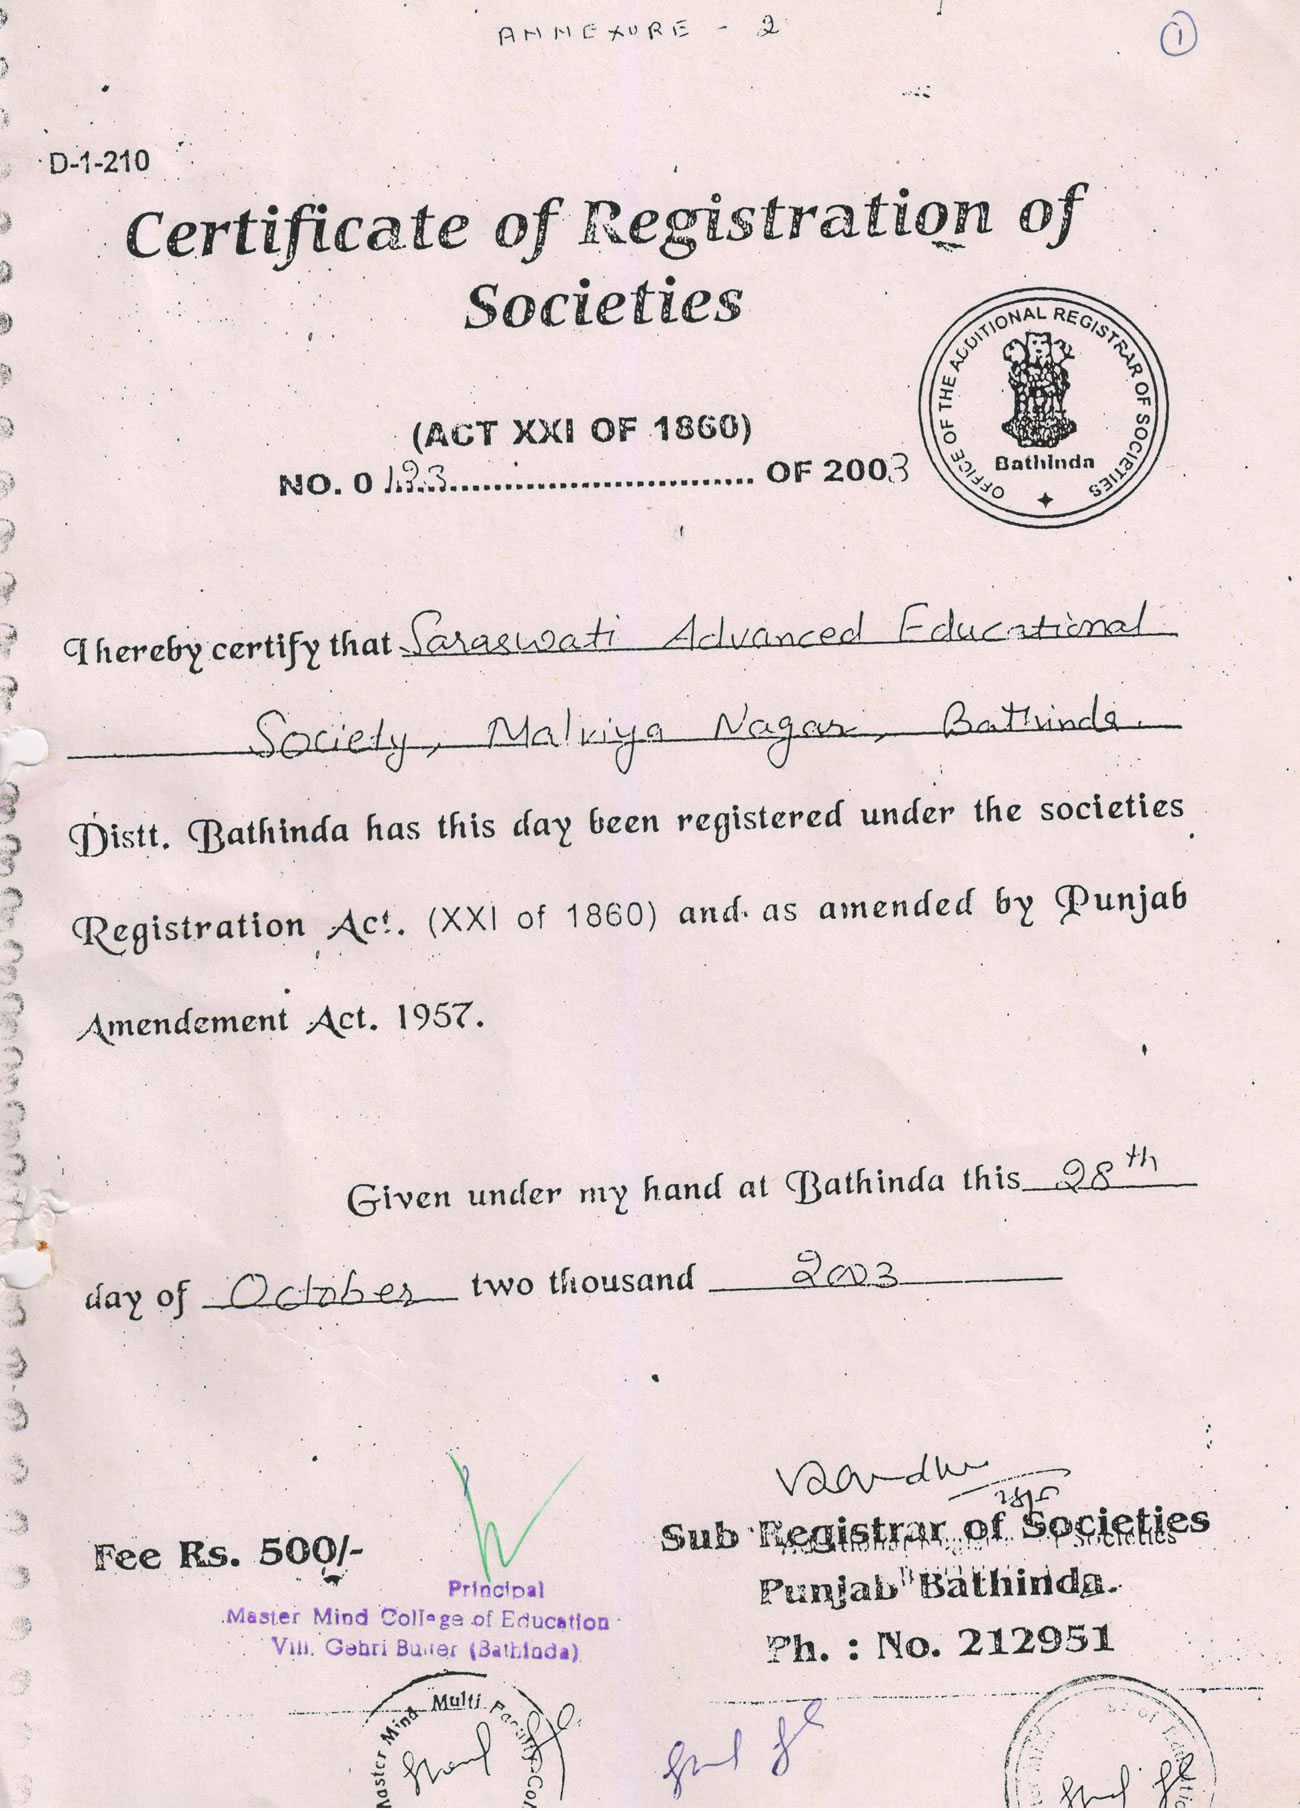 ANNEXURE - 2
1
D-1-210
Certificate of Registration of
Societies
OFFICE OF THE ADDITIONAL REGISTRAR OF SOCIETIES
Bathinda
(ACT XXI OF 1860)
NO. 0 123.............................. OF 2003
I hereby certify that Saraswati Advanced Educational
Society, Malviya Nagar, Bathinda.
Distt. Bathinda has this day been registered under the societies
Registration Act. (XXI of 1860) and as amended by Punjab
Amendement Act. 1957.
Given under my hand at Bathinda this 28th
day of October two thousand 2003
Fee Rs. 500/-
Sub Registrar of Societies
Punjab Bathinda.
Ph. : No. 212951
Principal
Master Mind College of Education
Vill. Gehri Butter (Bathinda)
Master Mind Multi Facility